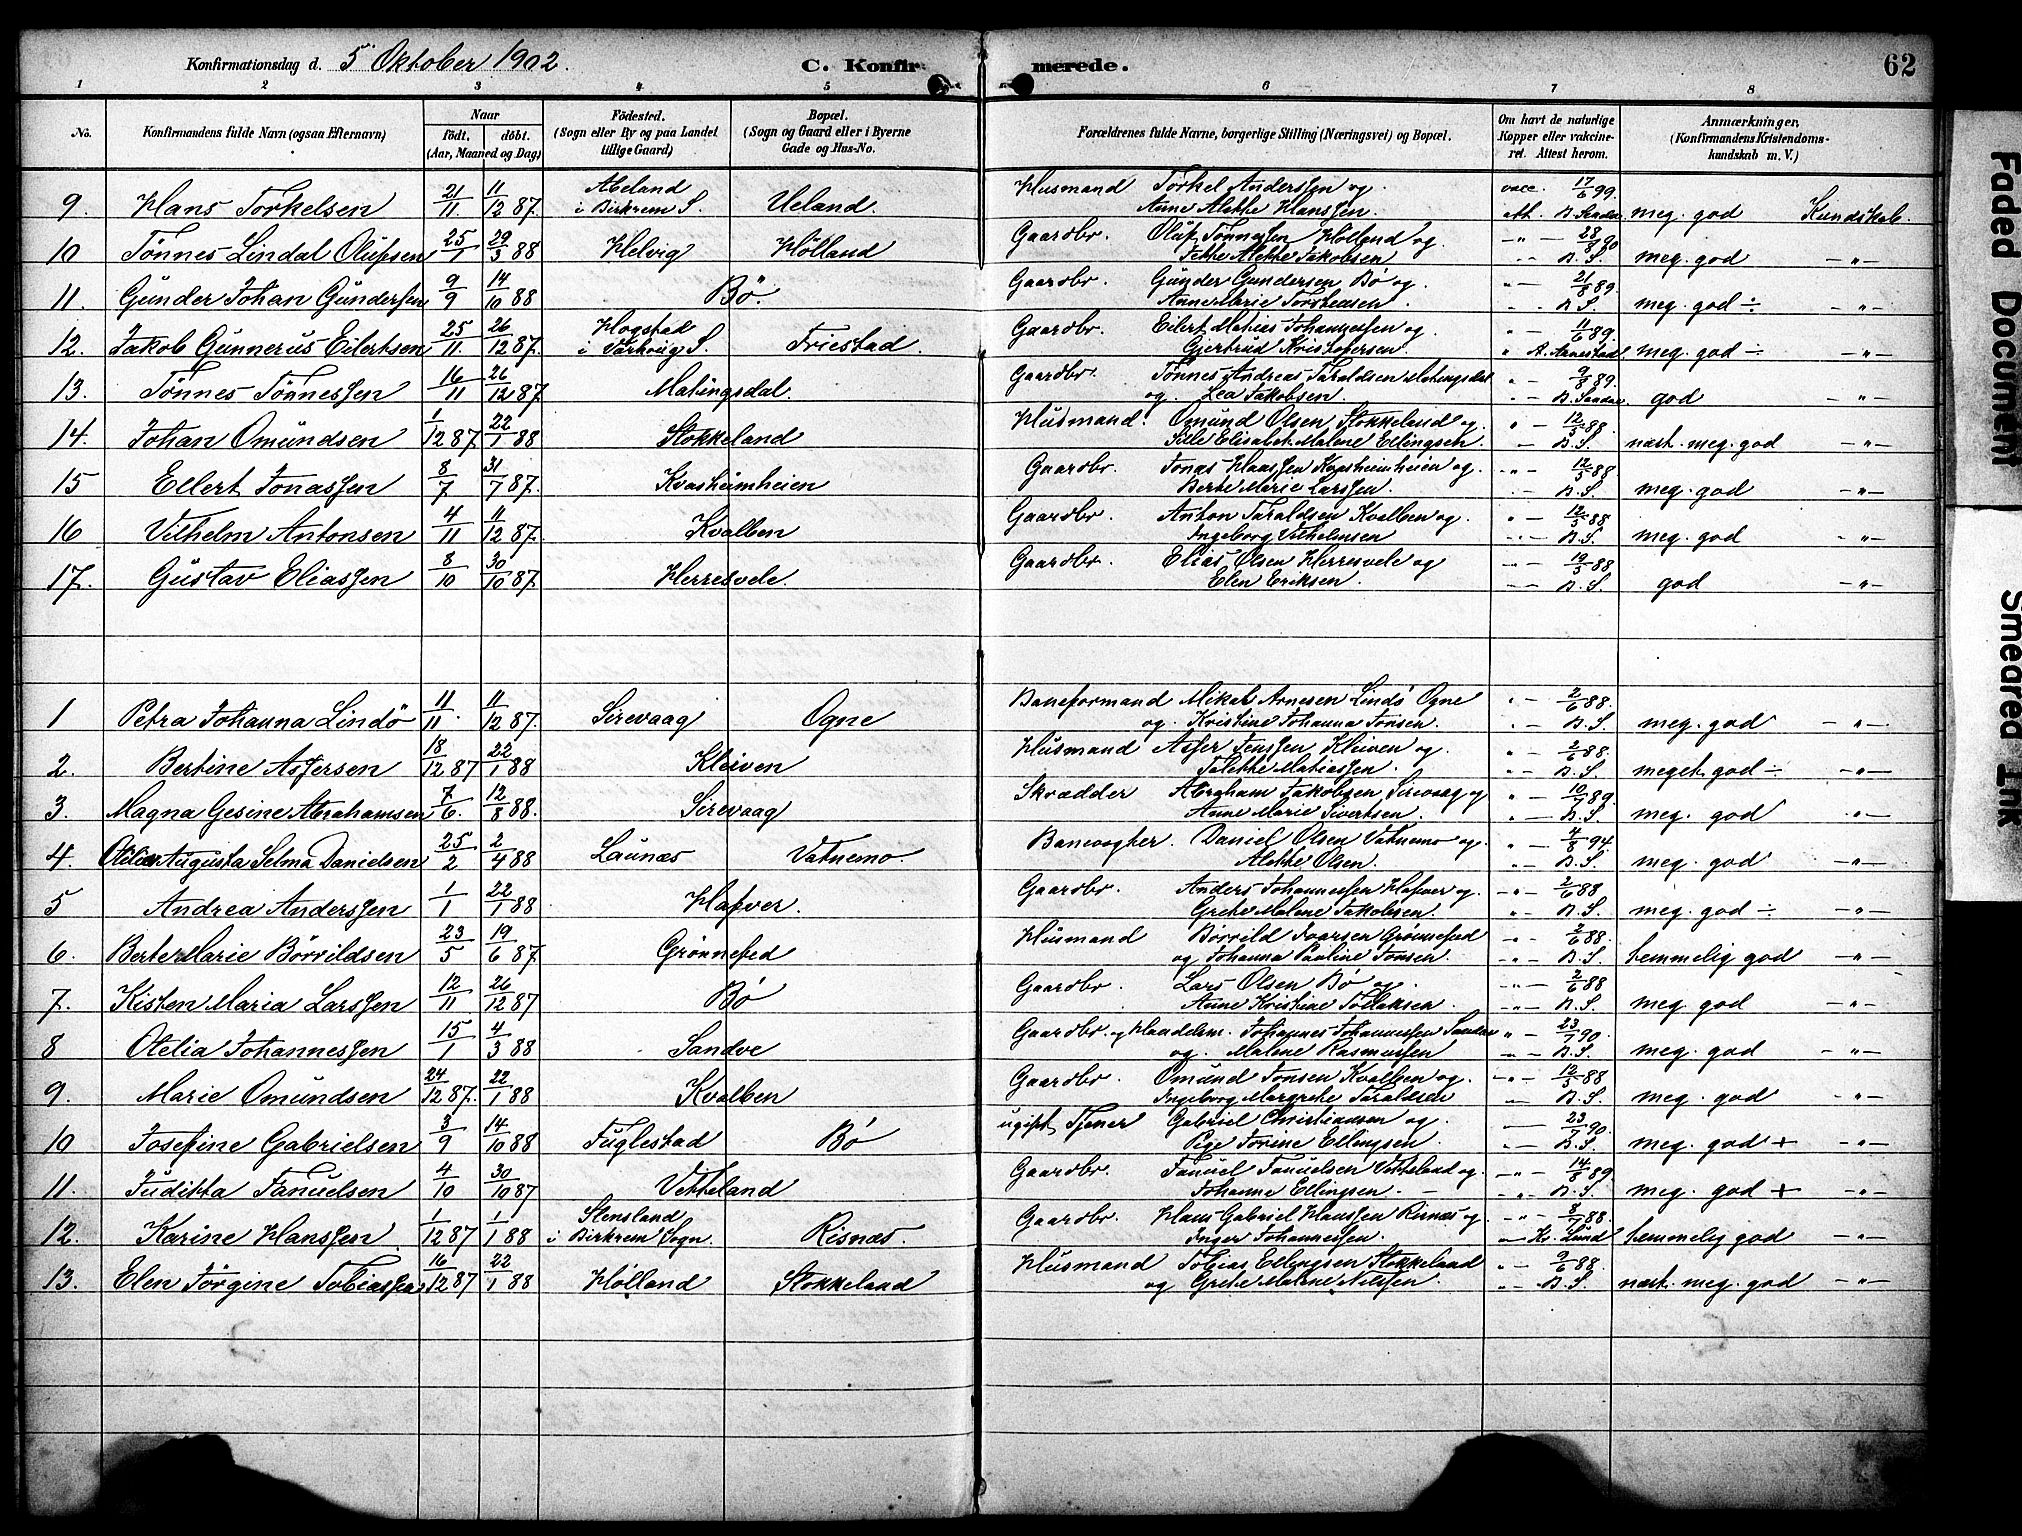 Konfirmationsdag d. 5 Oktober 1902. C. Konfirmerede. 62
1 2 3 4 5 6 7 8
No. Konfirmandens fulde Navn (ogsaa Efternavn) Naar födt. döbt. (Aar, Maaned og Dag) Födested. (Sogn eller By og paa Landet tillige Gaard) Bopæl. (Sogn og Gaard eller i Byerne Gade og Hus-No. Forældrenes fulde Navne, borgerlige Stilling (Næringsvei) og Bopæl. Om havt de naturlige Kopper eller vakcineret. Attest herom. Anmærkninger, (Konfirmandens Kristendomskundskab m. V.)
9. Hans Torkelsen 21/11 11/12 87. Abeland i Birkrem S. Ueland. Husmand Torkel Anderssen og Anne Alette Hanssen. vacc. 17/6 99 att. meg. god Kundskab.
10 Tönnes Lindal Olufsen 25/1 29/3 88 Helvig Hölland Gaardbr. Oluf Tönnessen Hölland og Jette Alette Jakobsen -"- 28/8 90 B.S. meg. god -"-
11. Gunder Johan Gundersen 9/9 14/10 88 Bö. Gaardbr. Gunder Gundersen Bö og Anne Marie Torstensen. 21/8 89. B.S. meg. god ÷ -"-
12. Jakob Gunnerus Eilertsen 25/11. 26/12 87. Hogstad i S. Friestad. Gaardbr. Eilert Matias Johannessen og Gjertrud Kristofersen. 11/6 89. A. Aanestad meg. god ÷ -"-
13. Tönnes Tönnessen 16/11 26/12 87 Matingsdal. Gaardbr. Tönnes Andreas Taraldsen Matingsdal og Lea Jakobsen. 9/8 89. god -"-
14. Johan Omundsen 1/12 87. 22/1 88 Stokkeland Husmand. Omund Olsen Stokkeland og Sille Elisabet Malene Ellingsen. 12/5 88. B.S. næst. meg. god -"-
15 Ellert Jonassen 8/7 31/7 87. Kvasheimheien Gaardbr. Jonas Hanssen Kvasheimheien og Berte Marie Larssen. -"- 12/5 88 B.S. meg. god -"-
16 Vilhelm Antonsen 4/11 11/12 87. Kvalben Gaardbr. Anton Taraldsen Kvalben og Ingeborg Vilhelmsen 12/5 88 B.S. meg. god -"-
17. Gustav Eliassen 8/10 30/10 87. Herresvele. Gaardbr. Elias Olsen Herresvele og Elen Eriksen. 19/5 88. B.S. god -"-
1 Petra Johanna Lindö 11/11. 11/12 87. Sirevaag Ogne Baneformand Mikal Arnesen Lindö Ogne og Kristine Johanna Jonsen. 2/6 88. B.S. meg. god -"-
2. Bertine Assersen 18/12 87 22/1 88 Kleiven Husmand Asser Jenssen Kleiven og Talette Matiassen. 2/6 88. B.S. meget god ÷ -"-
3. Magna Gesine Abrahamsen 7/6. 12/8 88. Sirevaag Skrædder Abraham Jakobsen Sirevaag og Anne Marie Sivertsen. 10/7 89. B.S. meg. god -"-
4. Otelia Augusta Selma Danielsen 25/2 2/4 88 Launæs Vatnemo. Banevogter. Daniel Olsen Vatnemo og Alette Olsen. 4/8 94. B.S. meg. god -"-
5 Andrea Anderssen 1/1 22/1 88 Hafver. Gaardbr. Anders Johannessen Hafver og Grete Malene Jakobsen. -"- 2/6 88 B.S. meg. god ÷ -"-
6. Berte Marie Börrildsen 23/5 19/6 87. Grönnefed Husmand Börrild Ivarsen Grönnefed og Johanna Pauline Jonsen. 2/6 88. B.S. temmelig god -"-
7. Kisten Maria Larssen 12/11 26/12 87 Bö Gaardbr. Lars Olsen Bö og Anne Kristine Tollaksen. 2/6 88 B.S. meg. god -"-
8 Otelia Johannessen 15/1 4/3 88 Sandve Gaardbr. og Handelsm. Johannes Johannessen og Malene Rasmussen 23/7 90. B.S. meg. god -"-
9. Marie Omundsen 24/12 87. 22/1 88 Kvalben Gaardbr. Omund Jonsen Kvalben og Ingeborg Margrete Taraldsen -"- 12/5 88 B.S. meg. god -"-
10 Josefine Gabrielsen 3/9 14/10 88 Fuglestad Bö ugift Tjener Gabriel Christiansen og Pige Torine Ellingsen. 23/7 90. B.S. meg. god + -"-
11. Juditta Fanuelsen 4/10 30/10 87 Vetteland Gaardbr. Fanuel Fanuelsen Vetteland og Johanne Ellingsen. 14/8 89 B.S. meg. god + -"-
12. Karine Hanssen 1/12 87 1/1 88 Stensland i Birkrem Sogn. Risnæs. Gaardbr. Hans Gabriel Hanssen Risnæs og Inger Johannessen. 8/7 88. K. Lund temmelig god -"-
13. Elen Jörgine Tobiassen 16/12 87 22/1 88 Hölland Stokkeland Husmand Tobias Ellingsen Stokkeland og Grete Malene Nilssen. 9/6 88. B.S. næst. meg. god -"-
Faded Document
Smeared Ink